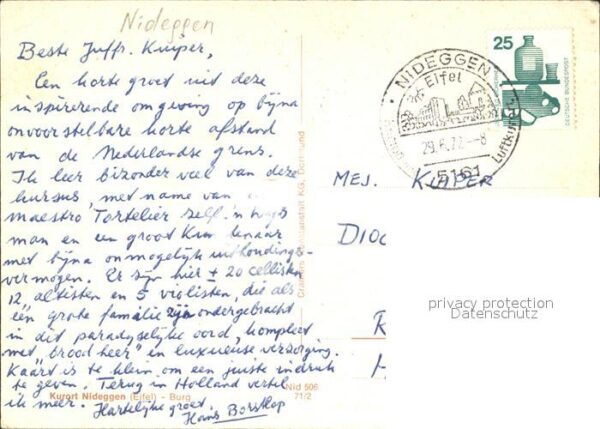 Nideggen
Beste Juffr. Kuiper,
Een korte groet uit deze
inspirerende omgeving op bijna
onvoorstelbare korte afstand
van de Nederlandse grens.
Ik leer bizonder veel van deze
kursus, met name van
maestro Tortelier zelf, 'n wijs
man en een groot Kunstenaar
met bijna onmogelijk uithoudings-
vermogen. Er zijn hier ± 20 cellisten
12, altisten en 5 violisten, die als
een grote familie zijn ondergebracht
in dit paradyselijke oord, kompleet
met "brood heer" en luxueuse verzorging.
Kaart is te klein om een juiste indruk
te geven. Terug in Holland vertel
ik meer. Hartelijke groet,
Hans Borstlap
Kurort Nideggen (Eifel) - Burg
Nid 506
71/2
KG, Dortmund
25
DEUTSCHE BUNDESPOST
NIDEGGEN
Eifel
29.6.72-8
Luftkurort
5161
MEJ. KUIPER
DIOC
R
H
privacy protection
Datenschutz